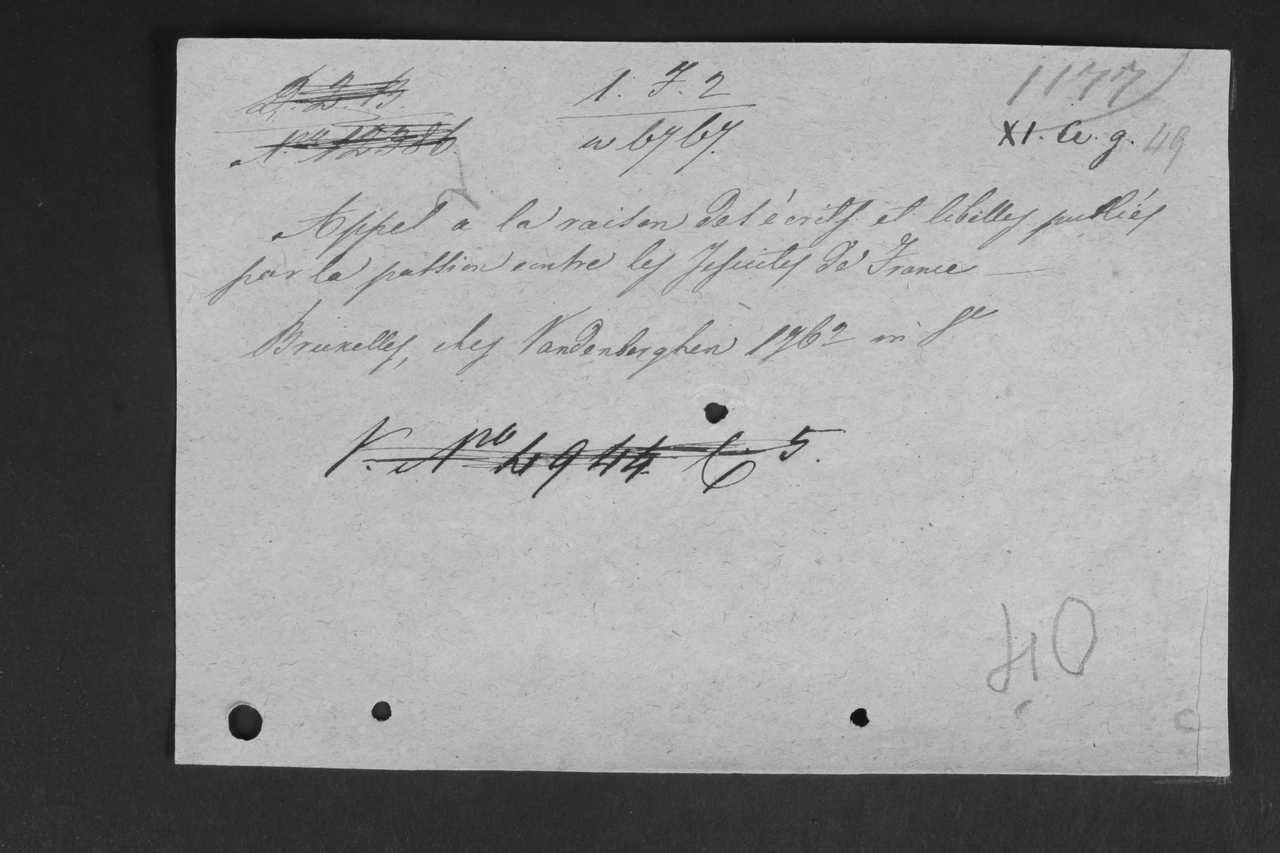 1. J. 2
1177
XI. a. g. 49
Appel a la raison des écrits et libelles publiés
par la passion contre les Jesuites de France —
Bruxelles, chez Vandenberghen 1762 in 8º
V. Nro 4944 5.
40